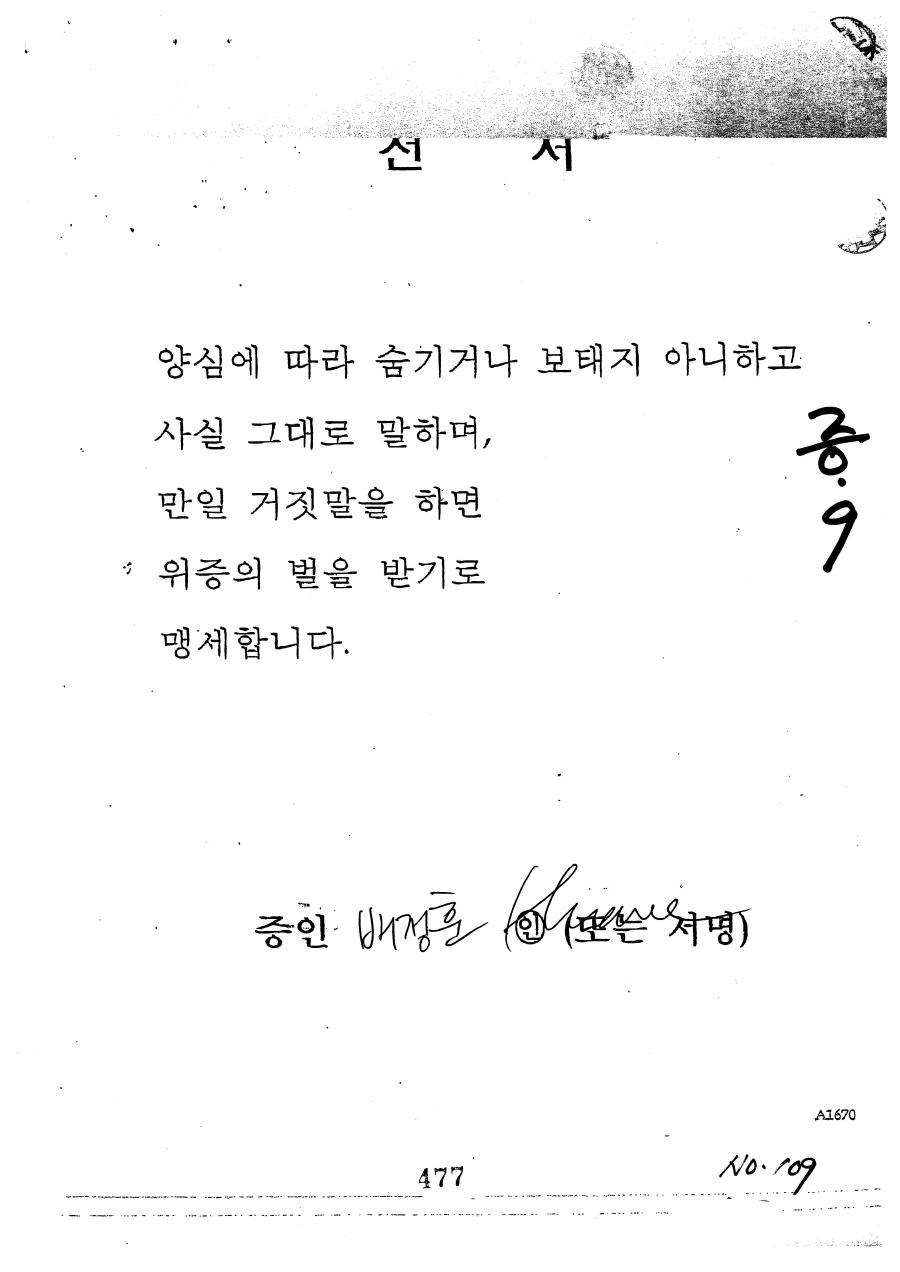 선 서
양심에 따라 숨기거나 보태지 아니하고
사실 그대로 말하며,
증.9
만일 거짓말을 하면
위증의 벌을 받기로
맹세합니다.
증인 배정훈 (인 (또는 서명)
A1670
477
No.109